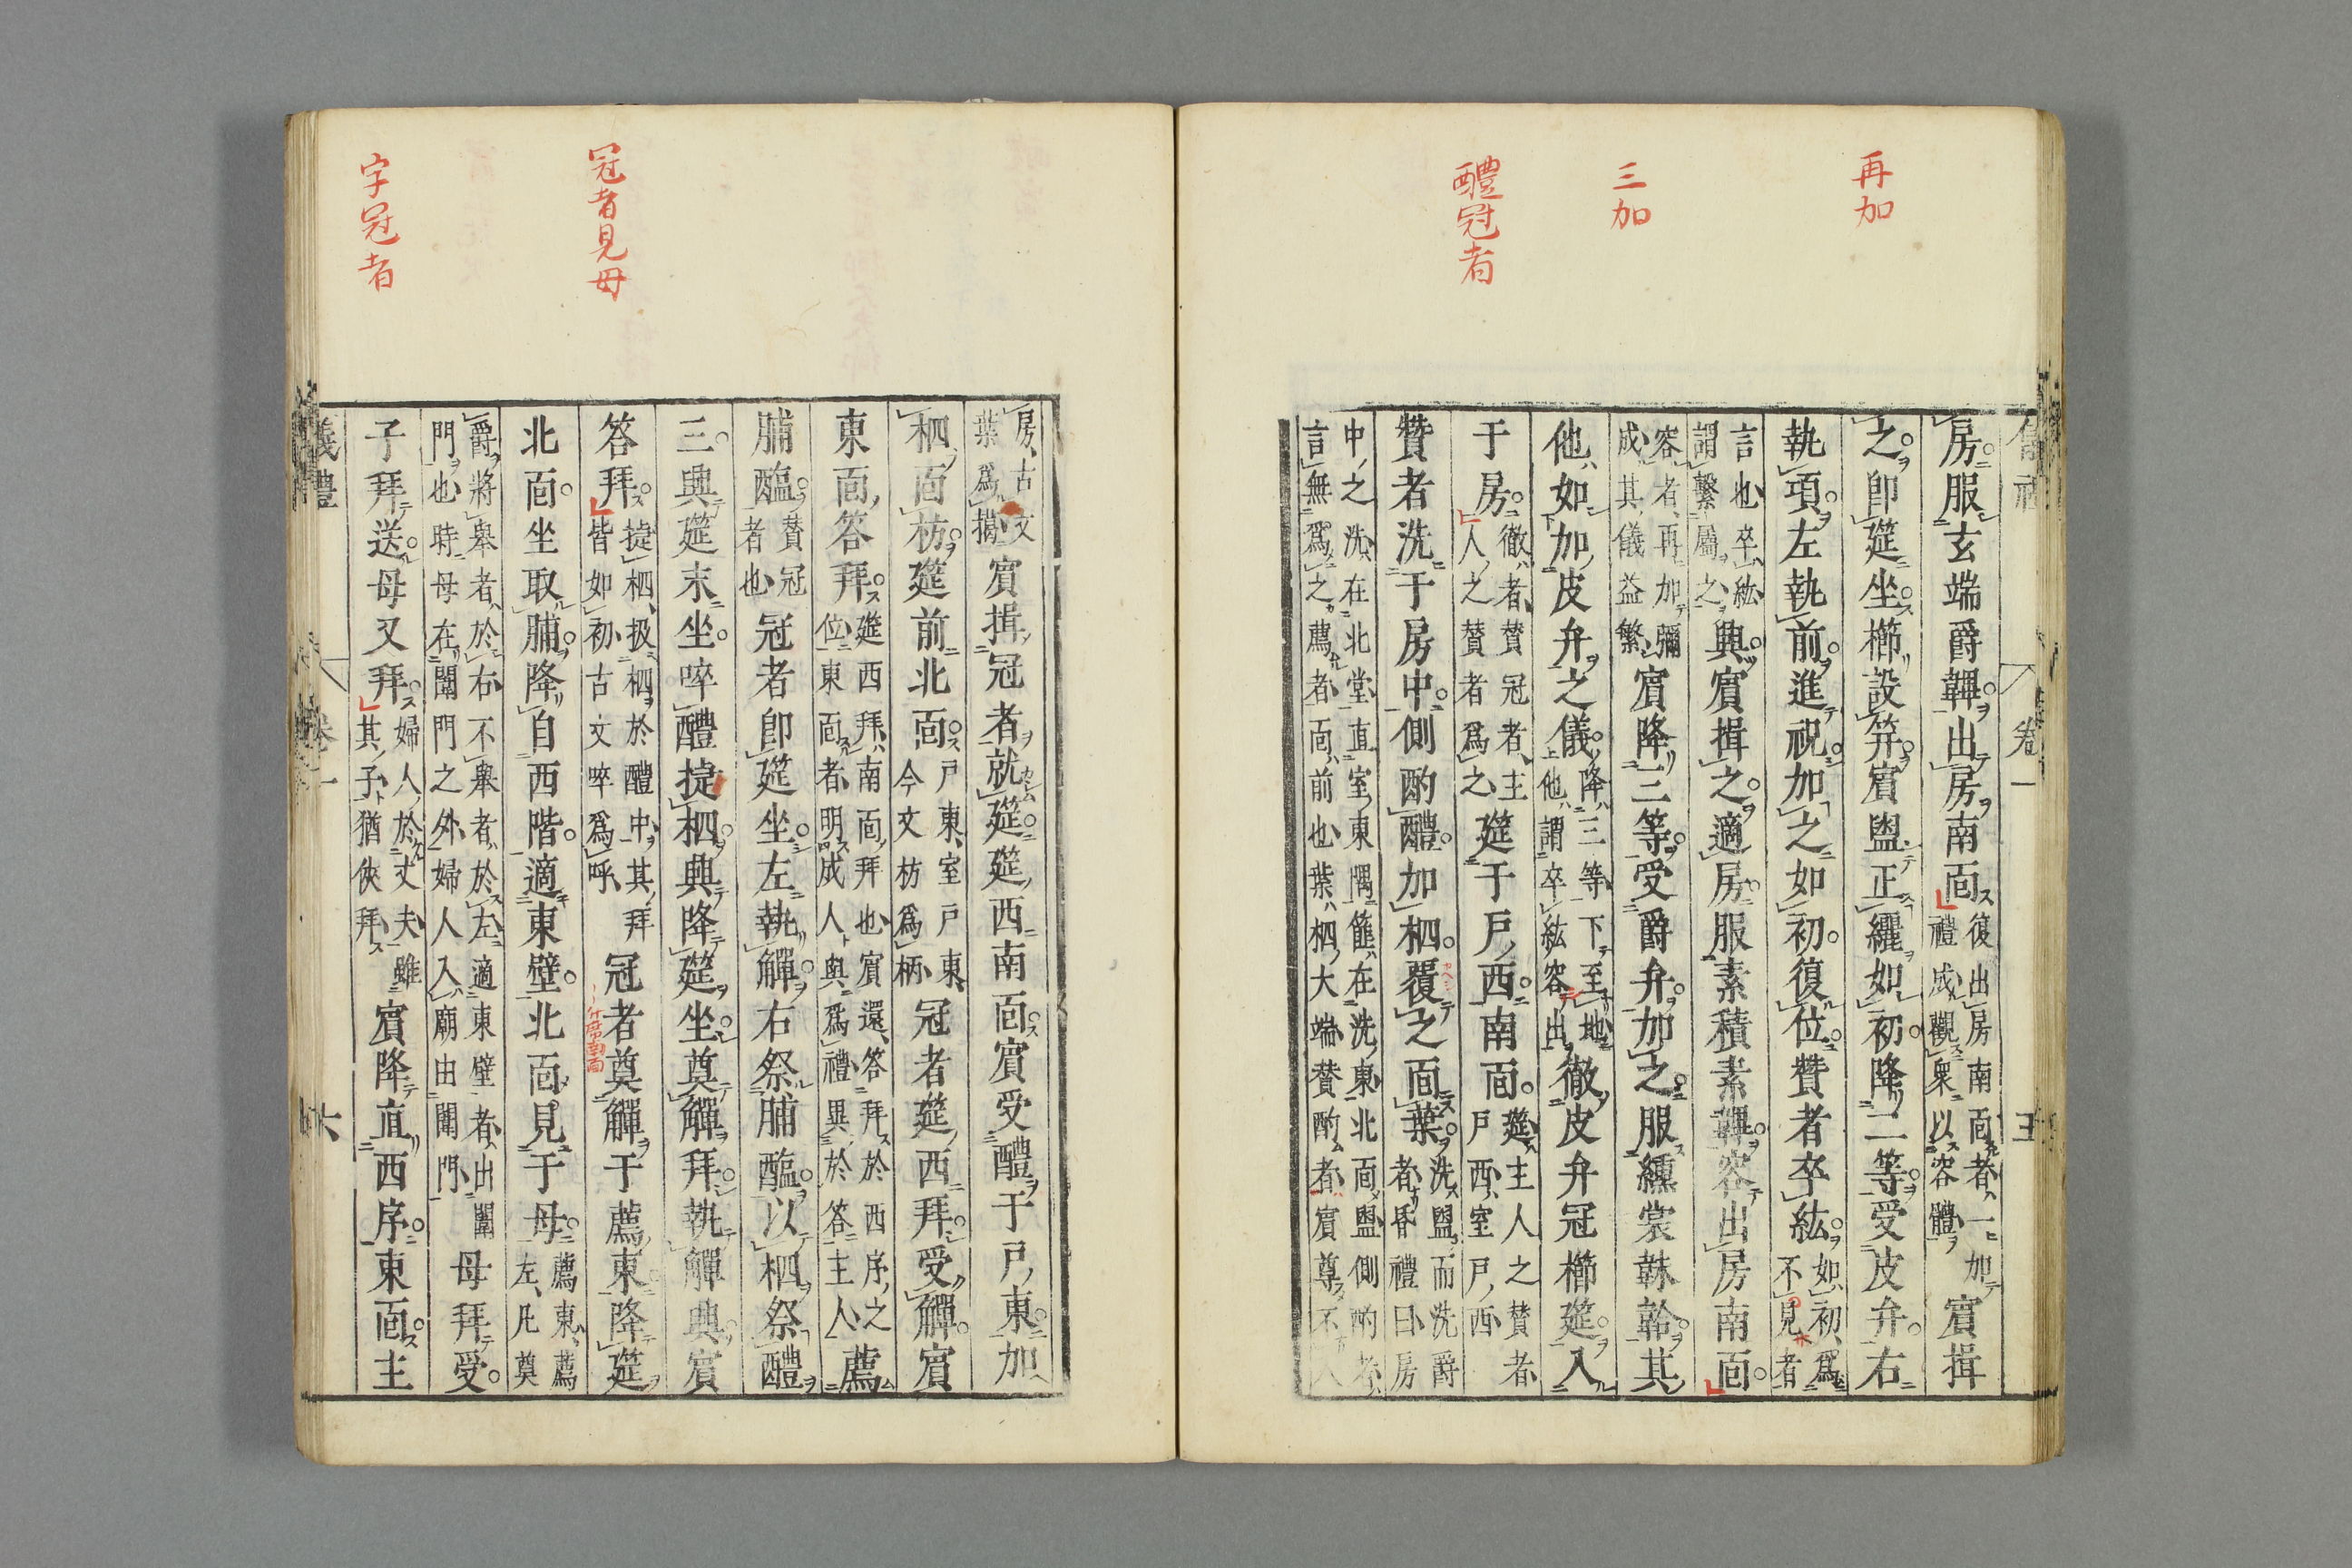 再加
三加
醴冠者
房服玄端爵韠出房南面復出房南面者一加禮成觀衆以容體賓揖
之卽筵坐櫛設笄賓盥正纚如初降二等受皮弁右
執項左執前進祝加之如初復位贊者卒紘如初爲不見者
言也卒紘謂繫屬之興賓揖之適房服素積素韠容出房南面
容者再加彌成其儀益繁賓降三等受爵弁加之服纁裳韎韐其
他如加皮弁之儀降三等下至地他謂卒紘容出徹皮弁冠櫛筵入
于房徹者贊冠者主人之贊者爲之筵于戶西南面筵主人之贊者戶西室戶西
贊者洗于房中側酌醴加柶覆之面葉洗盥而洗爵者昏禮曰房
中之洗在北堂直室東隅篚在洗東北面盥側酌者言無爲之薦者面前也葉柶大端贊酌者賓尊不入
卷一
五
冠者見母
字冠者
房古文葉爲擖賓揖冠者就筵筵西南面賓受醴于戶東加
柶面枋筵前北面戶東室戶東今文枋爲柄冠者筵西拜受觶賓
東面答拜筵西拜南面拜也賓還答拜於西序之位東面者明成人與爲禮異於答主人薦
脯醢贊冠者也冠者卽筵坐左執觶右祭脯醢以柶祭醴
三興筵末坐啐醴揵柶興降筵坐奠觶拜執觶興賓
答拜揵柶扱柶於醴中其拜皆如初古文啐爲呼冠者奠觶于薦東降筵
席南面
北面坐取脯降自西階適東壁北面見于母薦東薦左凡奠
爵將舉者於右不舉者於左適東壁者出闈門也時母在闈門之外婦人入廟由闈門母拜受
子拜送母又拜婦人於丈夫雖其子猶俠拜賓降直西序東面主
儀禮
卷一
六